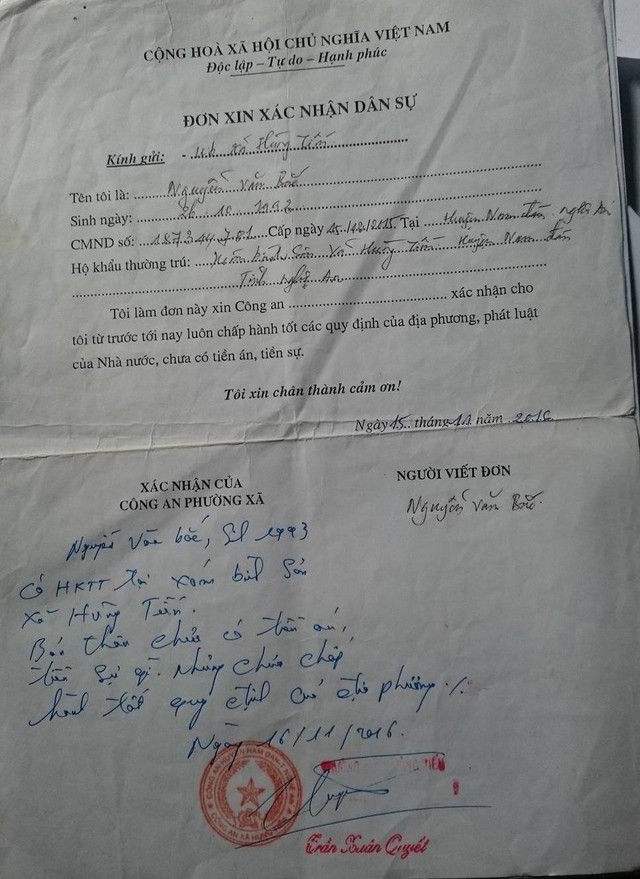 CỘNG HOÀ XÃ HỘI CHỦ NGHĨA VIỆT NAM
Độc lập – Tự do – Hạnh phúc
ĐƠN XIN XÁC NHẬN DÂN SỰ
Kính gửi: - xã Hưng Tiến
Tên tôi là: Nguyễn Văn Bắc
Sinh ngày: 26.10.1993
CMND số: Cấp ngày 15/12/2015 Tại Huyện Nam đàn, nghệ An
Hộ khẩu thường trú: Xóm bình Sơn Xã Hưng Tiến Huyện Nam đàn
Tỉnh nghệ An
Tôi làm đơn này xin Công an xác nhận cho
tôi từ trước tới nay luôn chấp hành tốt các quy định của địa phương, phát luật
của Nhà nước, chưa có tiền án, tiền sự.
Tôi xin chân thành cảm ơn!
Ngày 15 tháng 11 năm 2016
XÁC NHẬN CỦA
CÔNG AN PHƯỜNG XÃ
NGƯỜI VIẾT ĐƠN
Nguyễn Văn Bắc
Nguyễn Văn bắc, 1993
Có HKTT tại xóm bình Sơn
xã Hưng Tiến.
Bản thân chưa có tiền án,
tiền sự gì. Nhưng chưa chấp
hành tốt quy định của địa phương ./.
Ngày 16/11/2016.
CÔNG AN XÃ HƯNG TIẾN
Trần Xuân Quyết